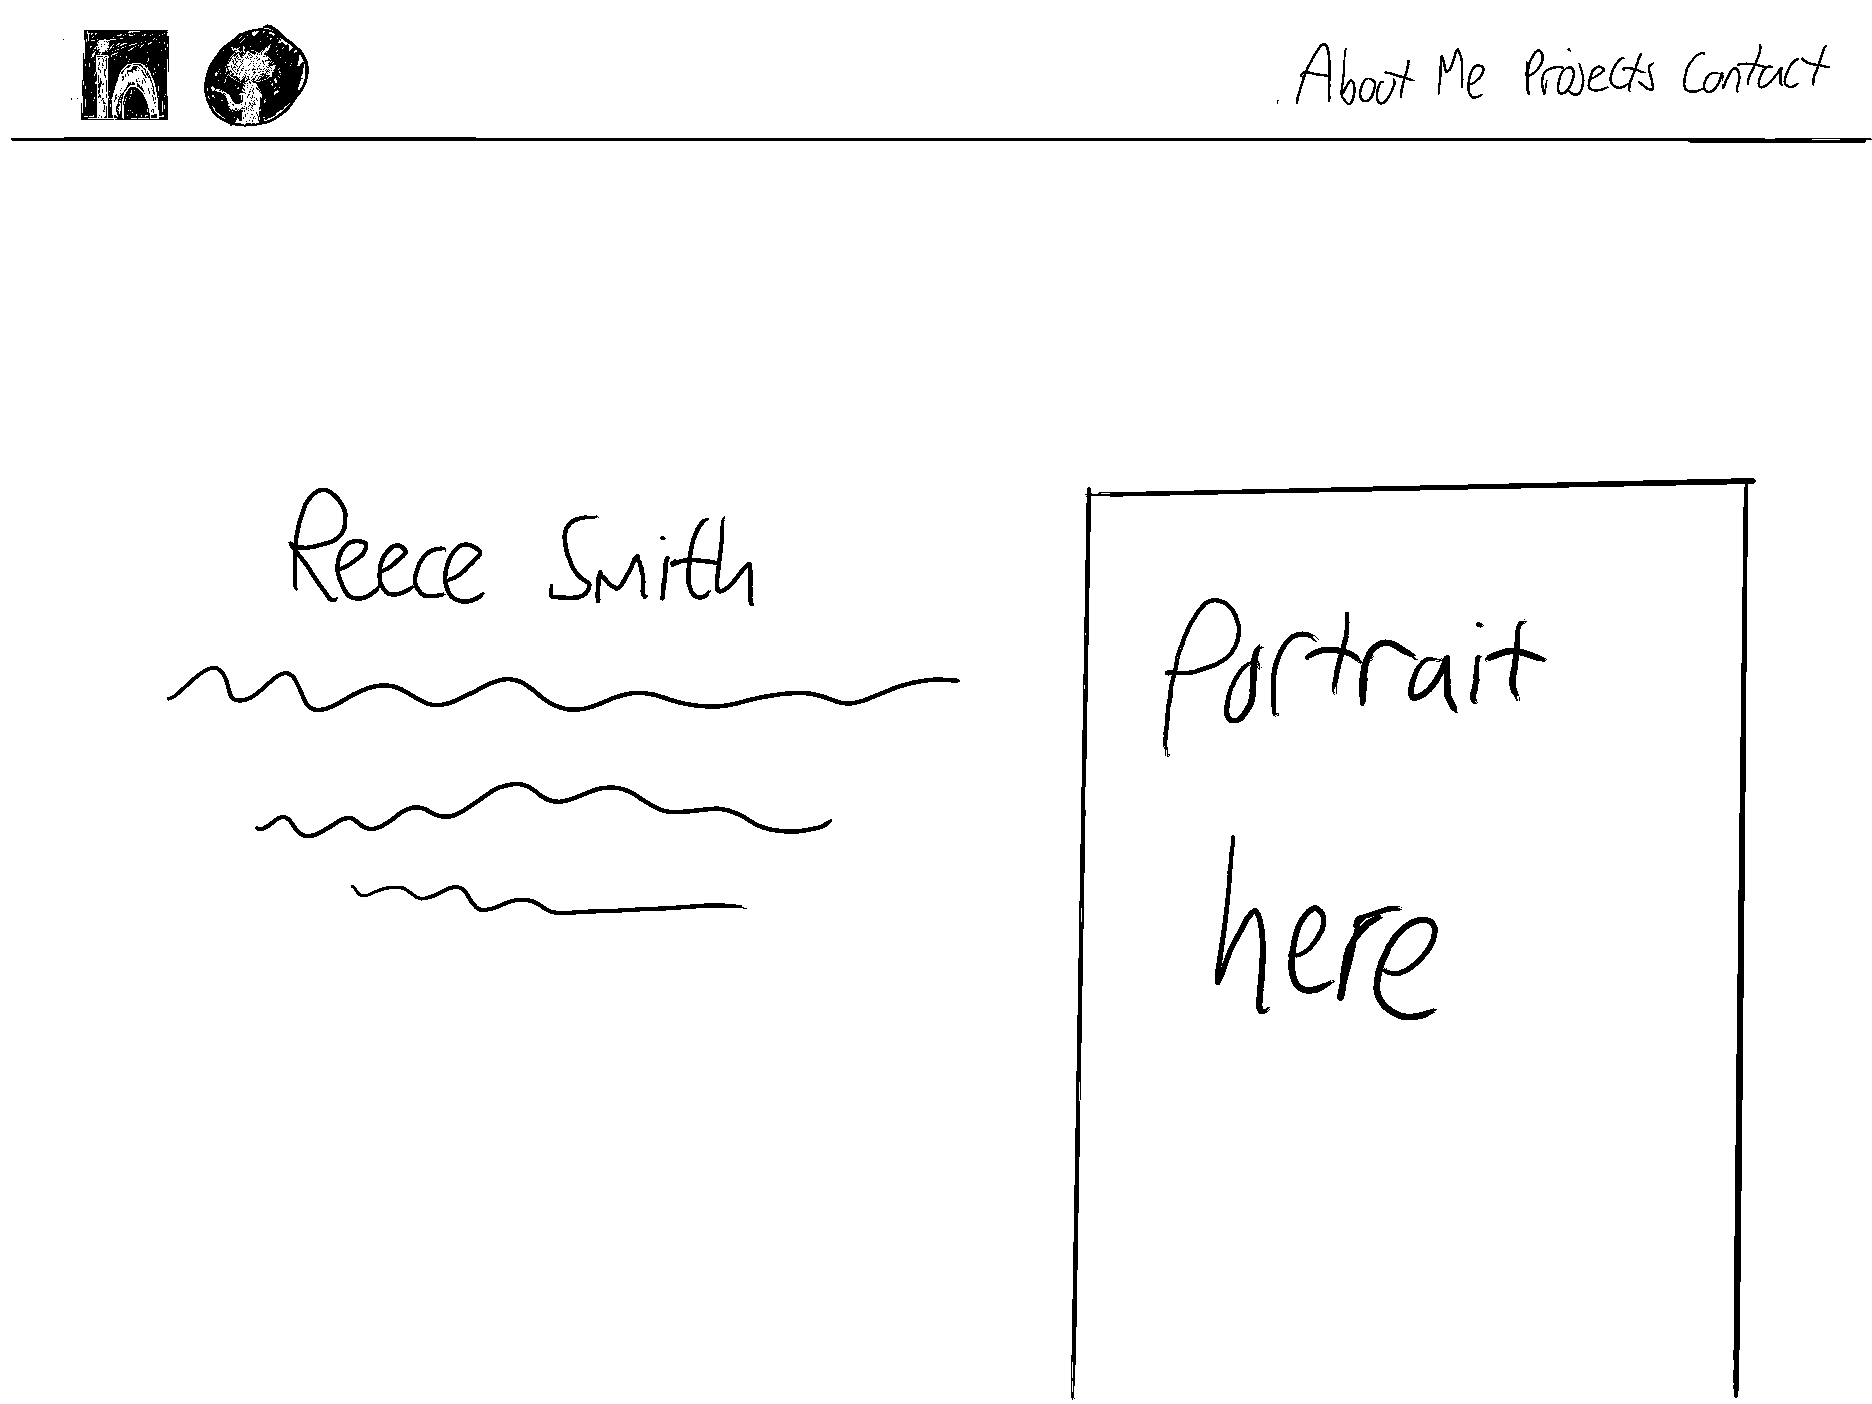 in
About Me Projects Contact
Reece Smith
Portrait
here